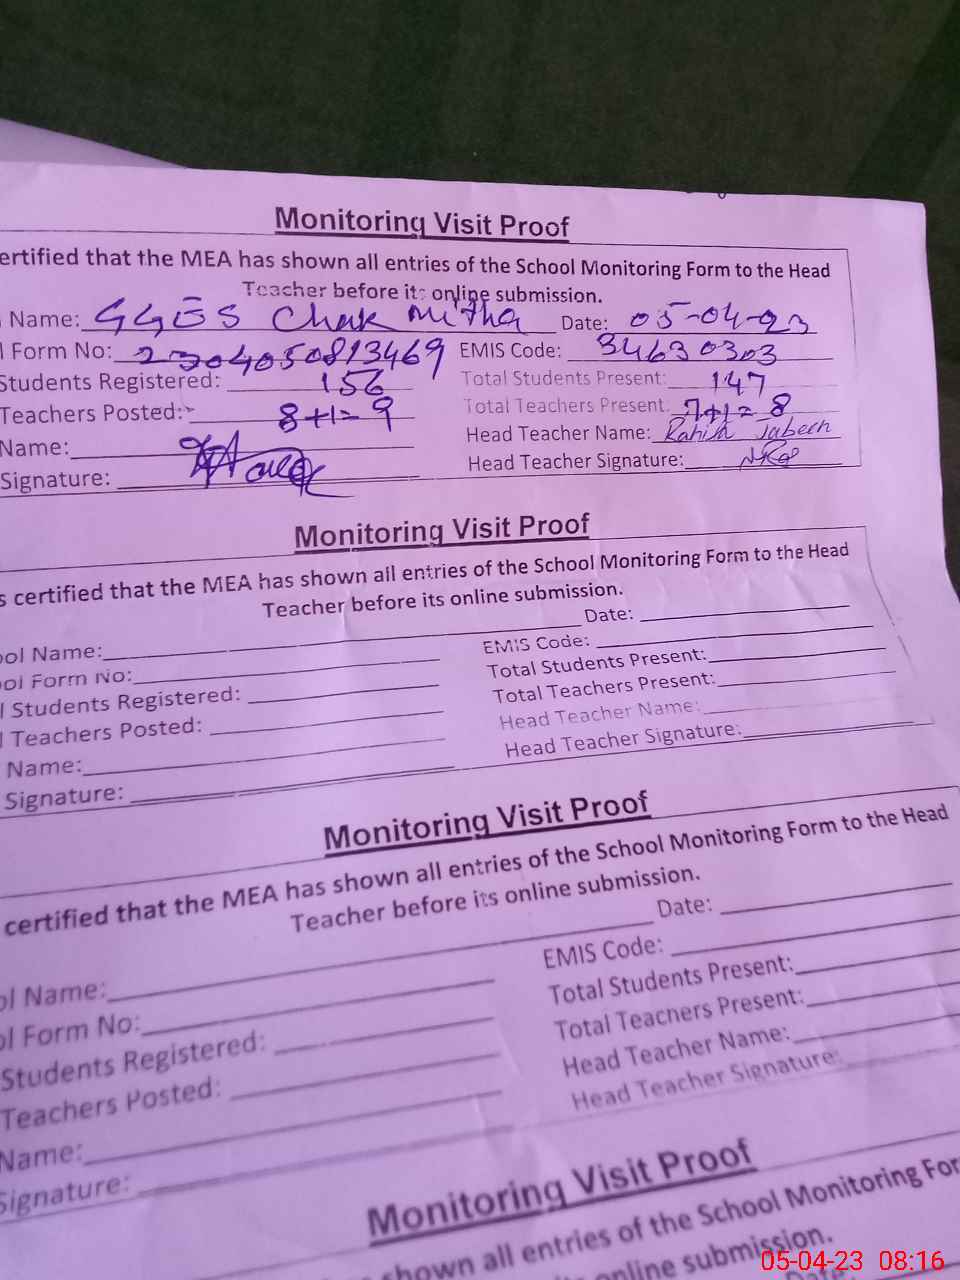 Monitoring Visit Proof
ertified that the MEA has shown all entries of the School Monitoring Form to the Head
Teacher before its online submission.
Name: GGES Chak Mitha Date: 05-04-23
l Form No: 2304050813469 EMIS Code: 34630303
Students Registered: 156 Total Students Present: 147
Teachers Posted: 8+1=9 Total Teachers Present: 7+1=8
Name: Head Teacher Name: Jabeen
Signature: Head Teacher Signature:
Monitoring Visit Proof
s certified that the MEA has shown all entries of the School Monitoring Form to the Head
Teacher before its online submission.
ool Name: Date:
ool Form No: EMIS Code:
l Students Registered: Total Students Present:
l Teachers Posted: Total Teachers Present:
Name: Head Teacher Name:
Signature: Head Teacher Signature:
Monitoring Visit Proof
certified that the MEA has shown all entries of the School Monitoring Form to the Head
Teacher before its online submission.
ol Name: Date:
ol Form No: EMIS Code:
Students Registered: Total Students Present:
Teachers Posted: Total Teachers Present:
Name: Head Teacher Name:
Signature: Head Teacher Signature:
Monitoring Visit Proof
shown all entries of the School Monitoring For
online submission.
05-04-23 08:16